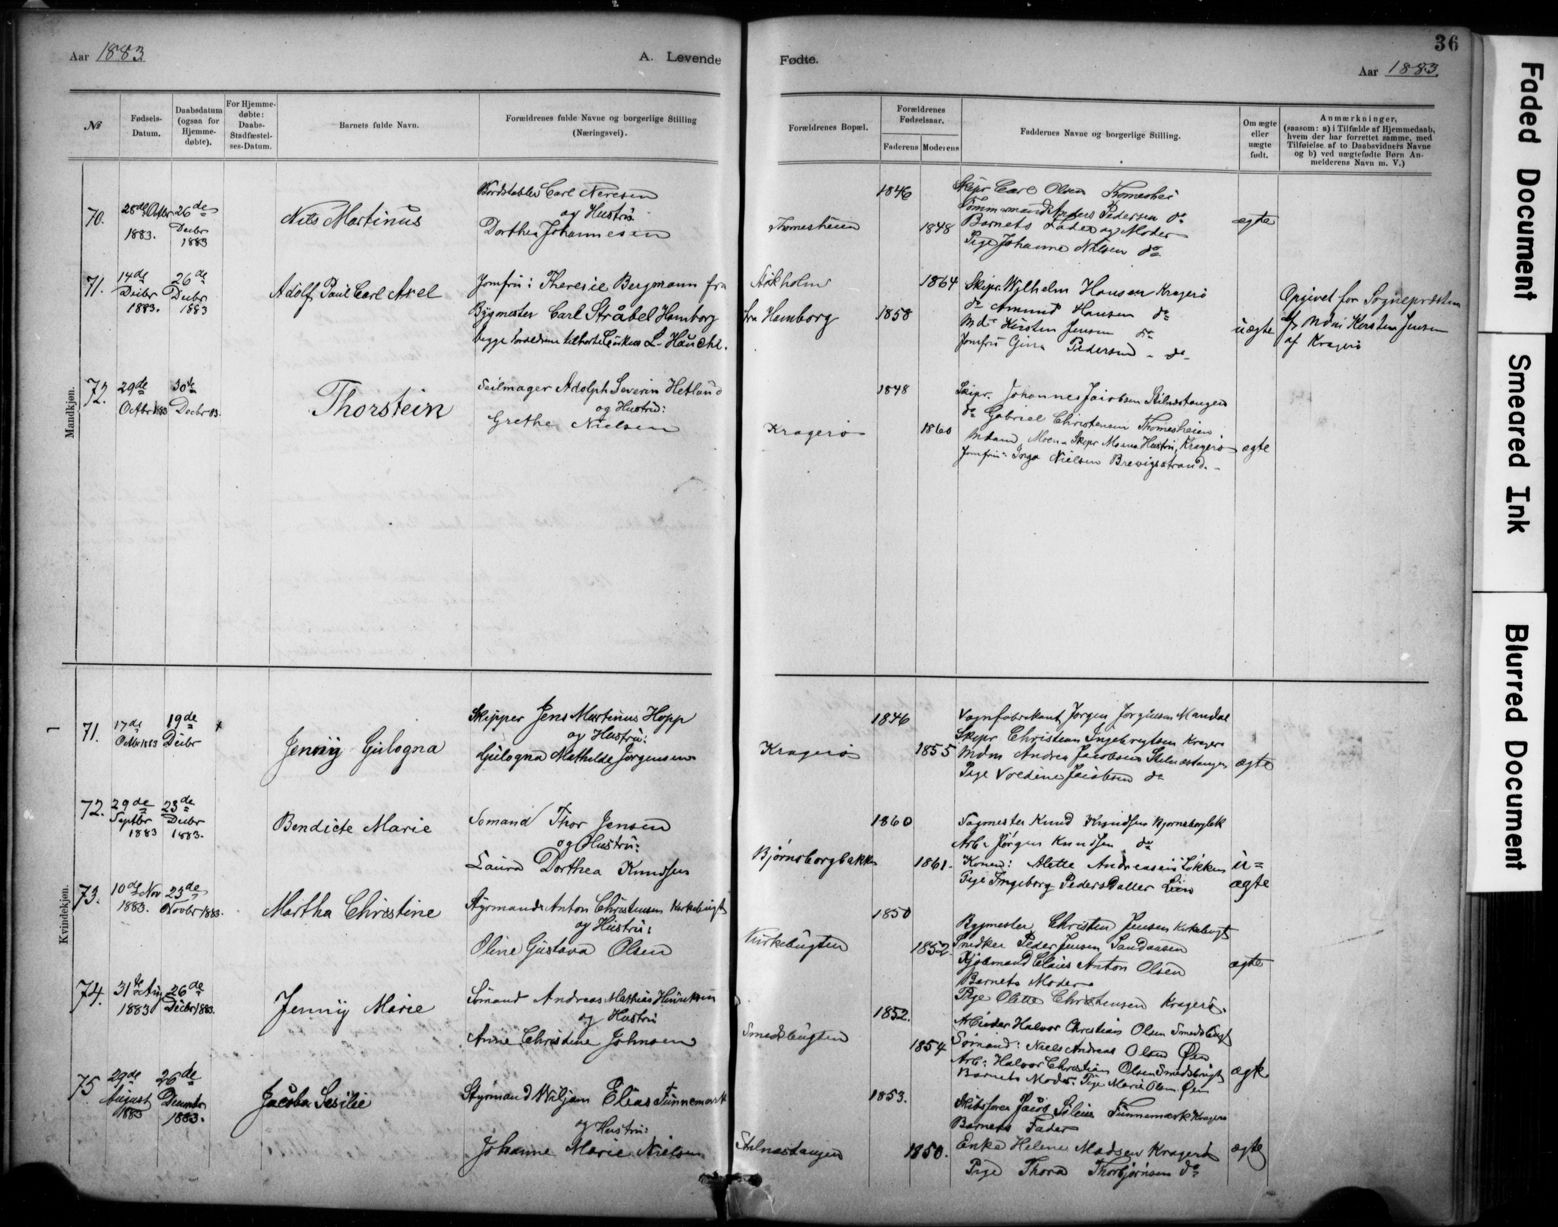 Aar 1883
A. Levende Fødte.
36
Aar 1883.
№
Fødsels-Datum.
Daabsdatum (ogsaa for Hjemme-døbte).
For Hjemme-døbte: Daabs-Stadfæstel-ses-Datum.
Barnets fulde Navn.
Forældrenes fulde Navne og borgerlige Stilling (Næringsvei).
Forældrenes Bopæl.
Forældrenes Fødselsaar.
Faderens
Moderens
Faddernes Navne og borgerlige Stilling.
Om ægte eller uægte født.
Anmærkninger,
(saasom: a) i Tilfælde af Hjemmedaab,
hvem der har forrettet samme, med
Tilføielse af to Daabsvidners Navne
og b) ved uægtefødte Børn An-
melderens Navn m. V.)
Mandkjøn.
70.
1883.
26de Decbr 1883
Nils Martinus
Carl Neresen
og Hustru
Dorthea Johannesen
Tomesheien
1846
1848
Skipr Carl Olsen Tomeshei
Anders Pedersen do
Barnets Fader og Moder
Pige Johanne Nilsen do
ægte
71.
14de Decbr 1883.
26de Decbr 1883
Adolf Paul Carl Axel
Jomfru: Theresie Bergmann fra Stokholm
Bygmester Carl Stråbel Hamborg
fra Hamborg
1864
1858
Skipr. Wilhelm Hansen Kragerø
do Amund Hansen do
Md: Kirsten Jensen do
Jomfru Gina Pedersen - do
uægte
Opgivet for Sognepræsten
af Mdm Kirsten Jensen
af Kragerø
72.
29de Octbr 1883
30te Decbr 83.
Thorstein
Seilmager Adolph Severin Hetlund
og Hustru:
Grethe Nielsen
Kragerø
1848
1860
Skipr. Johannes Jacobsen Stilnestangen
do Gabriel Christensen Tomesheien
Madam Moen - Skipr Moens Hustru, Kragerø
Jomfru: Inga Nielsen Brevigsstrand. -
ægte
Kvindekjøn.
71.
17de Octbr 1883
19de Decbr
Jenny Gulogna
Skipper Jens Martinus Hopp
og Hustru:
Gulogna Mathilde Jørgensen
Kragerø
1846
1855
Vognfabrikant Jørgen Jørgensen Mandal
Skipr Christian Ingebrigtsen Kragerø
Mdm Andrea Jacobsen Stilnestangen
Pige Voldine Jacobsen do
ægte
72.
29de Septbr 1883
23de Decbr 1883.
Bendicte Marie
Sømand Thor Jensen
og Hustru:
Laura Dorthea Knudsen
Bjørnsborgbakken
1860
1861.
Sagmester Knud Knudsen Bjørnsborgbk
Arb: Jørgen Knudsen do
Konen: Alette Andreassen Løkken
Pige Ingeborg Pedersdatter
u=
ægte
73.
10de Nov 1883.
23de Novbr 1883.
Martha Christine
Styrmand Anton Christensen Kirkebugt
og Hustru:
Oline Gustava Olsen
Kirkebugten
1850
1852.
Bygmester Christen Jensen Kirkebugt
Snedker Peder Jensen Sandaasen
Claus Anton Olsen
Barnets Moder
Pige Olette Christensen Kragerø.
ægte
74.
31te Aug 1883
26de Decbr 1883.
Jenny Marie
Sømand Andreas Mathias Henriksen
og Hustru
Anne Christine Johnsen
Smedsbugten
1852.
1854
Arbeider Halvor Christian Olsen Smedsbugt
Sømand: Niels Andreas Olsen Øen
Arb: Halvor Christian Olsen Smedsbugt
Barnets Moder. Pige Marie Olsen Øen
ægte
75
29de August 1883
26de Decembr 1883.
Jacoba Sesilie
Styrmand Wiljam Elias Tinnemark
og Hustru:
Johanne Marie Nielsen
Stilnestangen
1853.
1850.
Skibsfører Jacob Tinnemark Kragerø
Barnets Fader
Enke Helene Madsen Kragerø
Pige Thora Thorbjørnsen do
ægte
Faded Document
Smeared Ink
Blurred Document